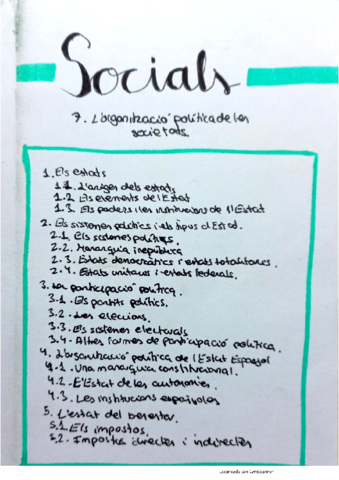 Socials
7. L'organització política de les
societats.
1. Els estats
1.1. L'origen dels estats
1.2 Els elements de l'Estat
1.3. Els poders i les institucions de l'Estat
2. Els sistemes polítics i els tipus d'Estat.
2.1. Els sistemes polítics.
2.2. Monarquia i república
2.3. Estats democràtics i estats totalitaris.
2.4. Estats unitaris i estats federals.
3. La participació política.
3.1. Els partits polítics.
3.2. Les eleccions.
3.3. Els sistemes electorals
3.4. Altres formes de participació política.
4. L'organització política de l'Estat Espanyol
4.1. Una monarquia constitucional.
4.2. L'Estat de les autonomies.
4.3. Les institucions espanyoles
5. L'estat del benestar.
5.1. Els impostos.
5.2. Impostos directes i indirectes